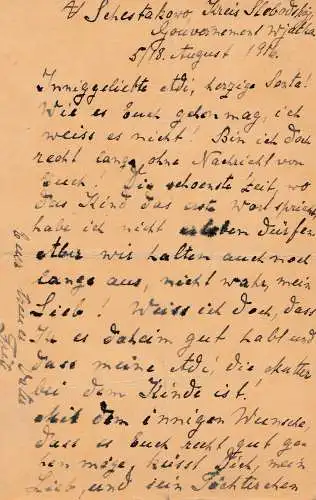 Schestakowo, Kreis Slobodskoj,
Gouvernement Wjatka
5/18. August 1916.
Inniggeliebte Adi, herzige Senta!
Wie es Euch gehen mag, ich
weiss es nicht! Bin ich doch
recht lange ohne Nachricht von
Euch! Die schoenste Zeit, wo
das Kind das erste Wort spricht,
habe ich nicht erleben dürfen
Aber wir halten auch noch
lange aus, nicht wahr, mein
Lieb! Weiss ich doch, dass
Ihr es daheim gut habt und
dass meine Adi, die Mutter
bei dem Kinde ist!
Mit dem innigen Wunsche,
dass es Euch recht gut ge-
hen möge, küsst Dich, mein
Lieb, und sein Töchterchen
Euer treuer Vater